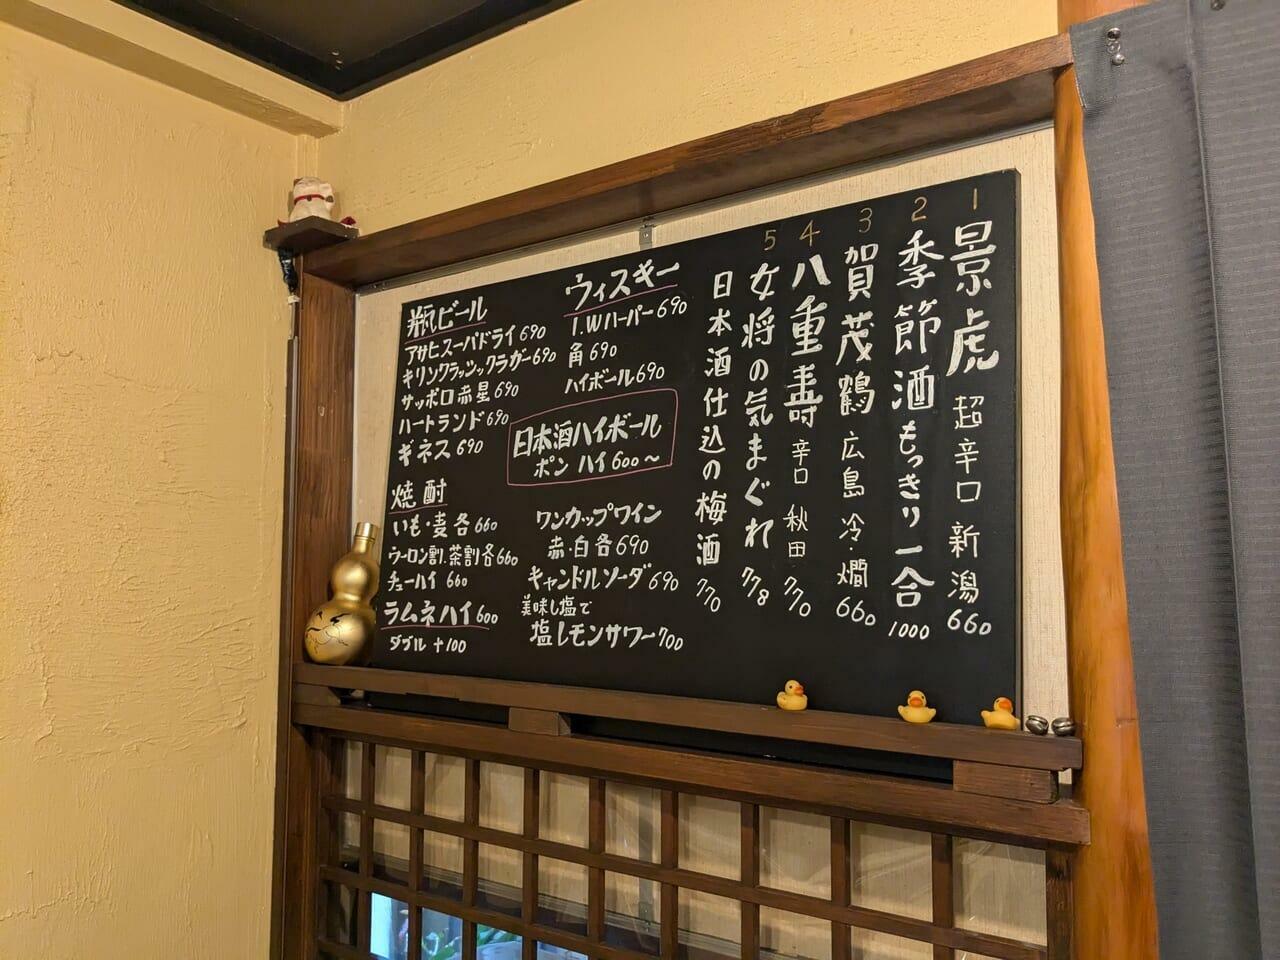 1 景虎 超辛口 新潟 660
2 季節酒 もっきり一合 1000
3 賀茂鶴 広島 冷・燗 660
4 八重寿 辛口 秋田 770
5 女将の気まぐれ 778
日本酒仕込の梅酒 770
ウィスキー
I.Wハーパー 690
角 690
ハイボール 690
日本酒ハイボール
ポン ハイ 600〜
ワンカップワイン
赤・白各690
キャンドルソーダ 690
美味し塩で
塩レモンサワー 700
瓶ビール
アサヒスーパドライ 690
キリンクラッシックラガー 690
サッポロ赤星 690
ハートランド 690
ギネス 690
焼酎
いも・麦各660
ウーロン割.茶割各660
チューハイ 660
ラムネハイ 600
ダブル +100